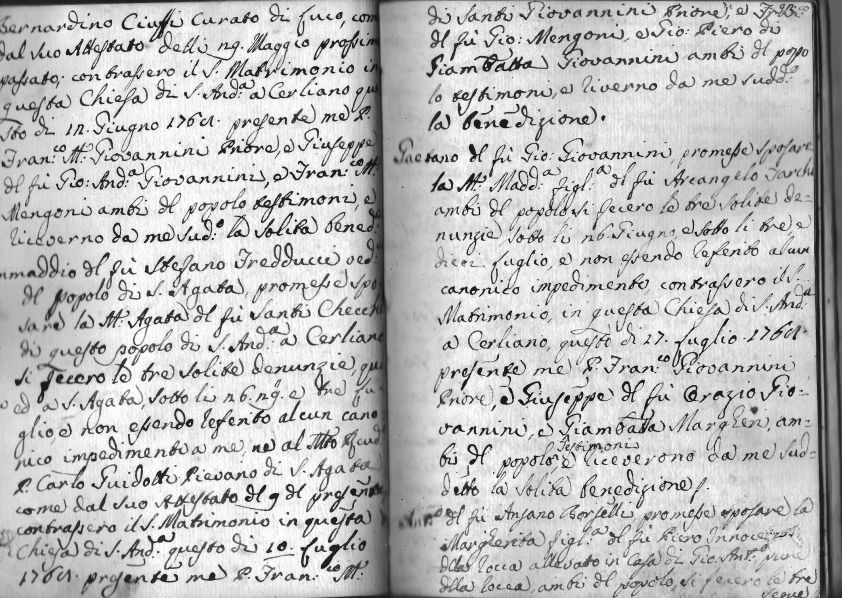 Bernardino Ciuffi Curato di Luco, com
dal suo Attestato delli 29. Maggio prossim
passato. contrassero il S. Matrimonio in
questa Chiesa di S. And.ª a Cerliano que
sto dì 12. Giugno 1761. presente me P.
Fran.co M.ª Giovannini Priore, e Giuseppe
dl fù Gio: And.ª Giovannini, e Fran.co M.ª
Mengoni ambi dl popolo testimoni, e
riceverno da me sud.º la solita bened.e
dl fù Stefano Fredducci
dl popolo di S. Agata, promesse spo
sare la M.ª Agata dl fù Santi Checchi
di questo popolo di S. And.ª a Cerliano
si fecero le tre solite denunzie, qui
ed a S. Agata, sotto li 26. 29. e tre Lu
glio, e non essendo referito alcun cano
nico impedimento a me, ne al
P. Carlo Guidotti Pievano di S. Agata
come dal suo Attestato dl 9 dl presente
contrassero il S. Matrimonio in questa
Chiesa di S. And.ª questo dì 10. Luglio
1761. presente me P. Fran.co M.ª
di Santi Giovannini Priore; e
dl fù Gio: Mengoni, e Gio: Piero di
Giambatta Giovannini ambi dl popo
lo testimoni, e riceverno da me sudd.º
la benedizione.
Gaetano dl fù Gio: Giovannini, promesse sposare
la M.ª Madd.ª figl.ª dl fù Arcangelo Tarchi
ambi dl popolo si fecero le tre solite de=
nunzie sotto li 26. Giugno e sotto li tre, e
dieci Luglio, e non essendo referito alcun
canonico impedimento contrassero il S.
Matrimonio, in questa Chiesa di S. And.ª
a Cerliano, questo dì 17. Luglio 1761.
presente me P. Fran.co Giovannini
Priore, e Giuseppe dl fù Orazio Gio=
vannini, e Giambatta Margheri, am=
bi dl popolo testimoni e riceverono da me sud=
detto la solita benedizione.
Ant.º dl fù Ansano Borselli promesse sposare la
Margherita figl.ª dl fù Piero Innocenti
dlla Rocca allevato in Casa di Gio: Ant.º
dlla Rocca, ambi dl popolo, si fecero le tre
segue